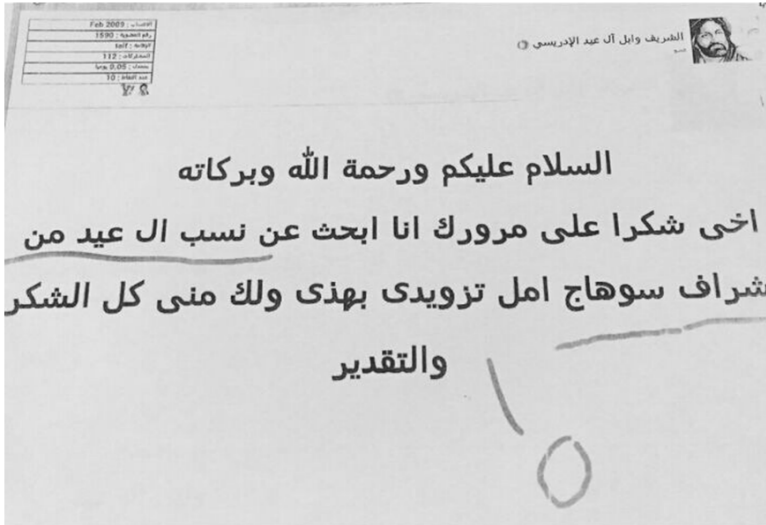 الشريف وابل آل عيد الإدريسي
عضو
Feb 2009
رقم العضوية : 1590
المشاركات : 112
السلام عليكم ورحمة الله وبركاته
اخى شكرا على مرورك انا ابحث عن نسب ال عيد من
شراف سوهاج امل تزويدى بهذى ولك منى كل الشكر
والتقدير
١٥